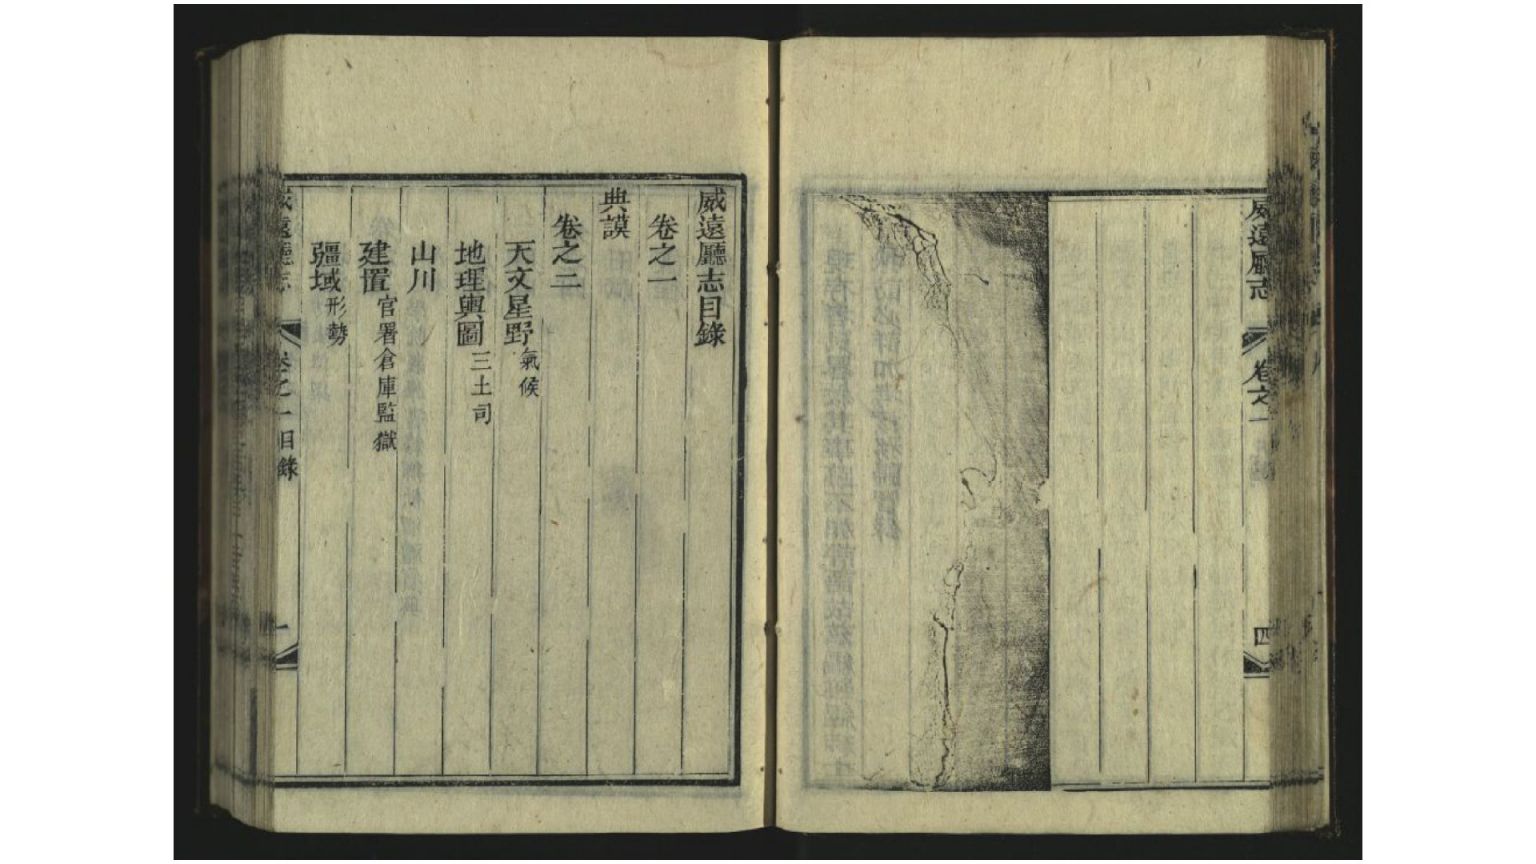 威遠廳志
卷之一
四
威遠廳志目錄
卷之一
典謨
卷之二
天文星野 氣候
地理輿圖 三土司
山川
建置 官署倉庫監獄
疆域 形勢
威遠廳志
卷之一目錄
一